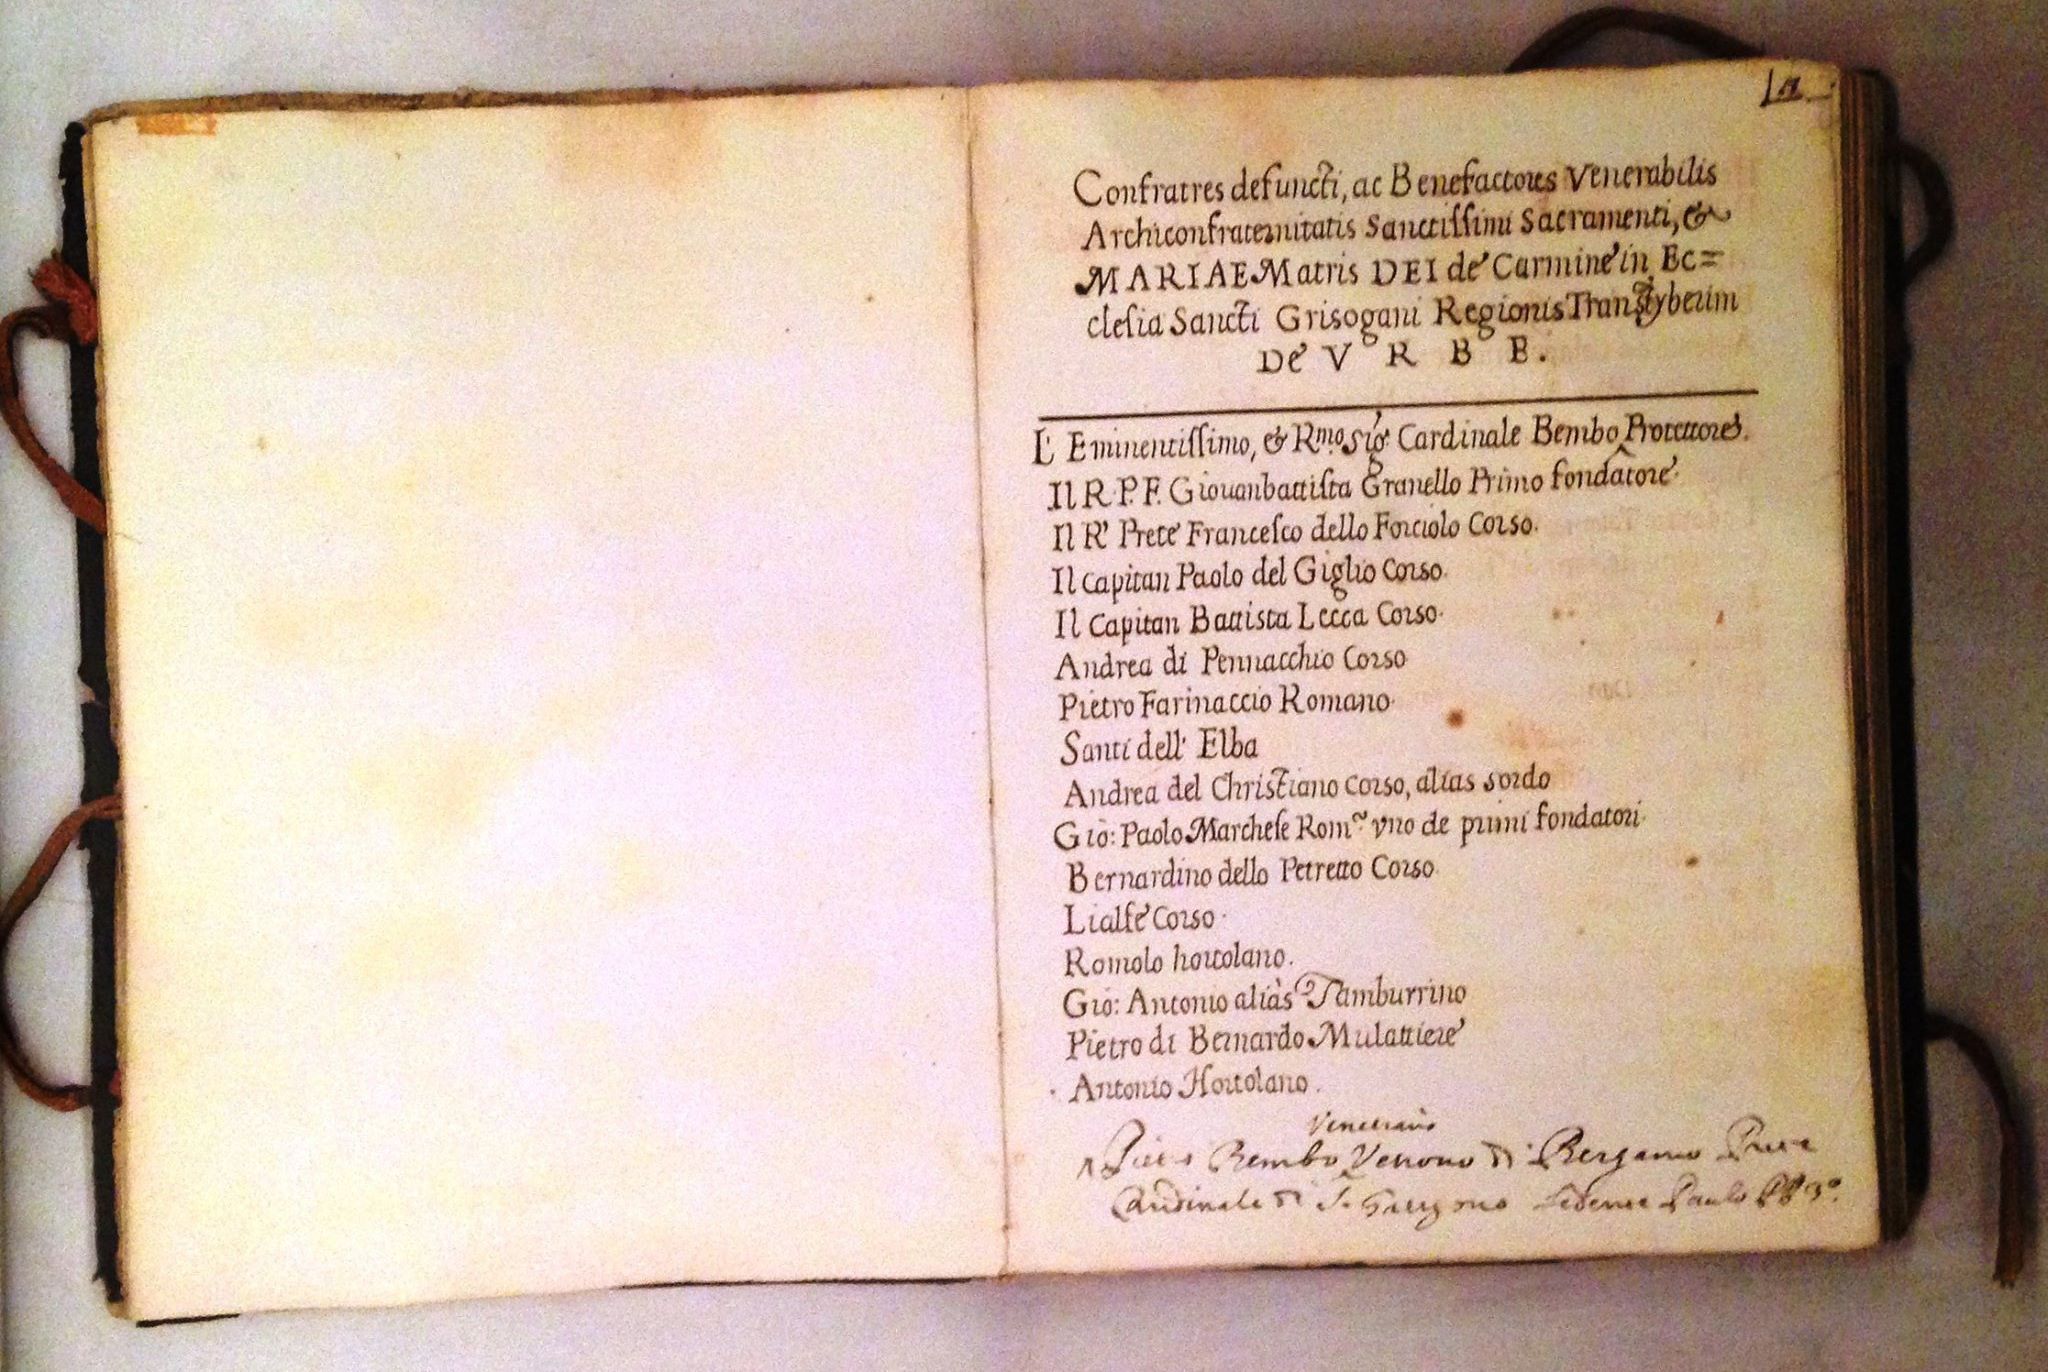 1
Confratres defuncti, ac Benefactores Venerabilis
Archiconfraternitatis Sanctissimi Sacramenti, &
MARIAE Matris DEI de Carmine in Ec=
clesia Sancti Grisogani Regionis Transtyberim
De VRBE.
L' Eminentissimo, & Rmo. Sig. Cardinale Bembo Protettore.
Il R. P. F. Giouanbattista Granello Primo fondatore.
Il R. Prete Francesco dello Forciolo Corso.
Il Capitan Paolo del Giglio Corso.
Il Capitan Battista Lecca Corso.
Andrea di Pennacchio Corso
Pietro Farinaccio Romano.
Santi dell' Elba
Andrea del Christiano Corso, alias sordo
Gio: Paolo Marchese Romo. vno de primi fondatori.
Bernardino dello Petretto Corso.
Lialfe Corso.
Romolo hortolano.
Gio: Antonio aliàs Tamburrino
Pietro di Bernardo Mulattiere
Antonio Hortolano.
Venetiano
Bembo di Bergamo Prete
Cardinale di S. Paulo PP 3º.